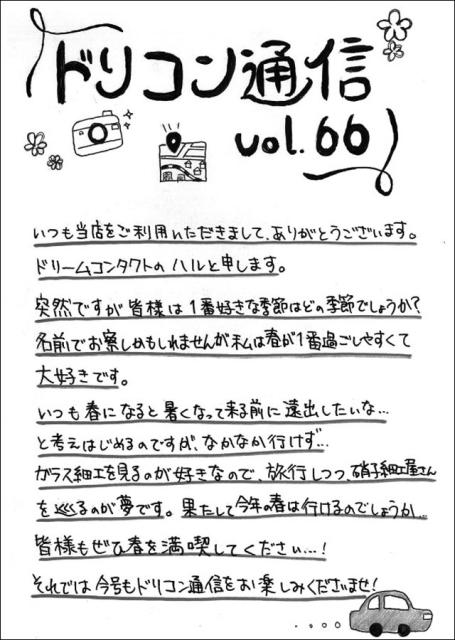 ドリコン通信
vol.66
いつも当店をご利用いただきまして、ありがとうございます。
ドリームコンタクトの ハルと申します。
突然ですが 皆様は 1番好きな季節はどの季節でしょうか?
名前でお察しかもしれませんが私は春が1番過ごしやすくて
大好きです。
いつも春になると 暑くなって来る前に 遠出したいな…
と考えはじめるのですが、なかなか行けず…
ガラス細工を見るのが好きなので、旅行しつつ、硝子細工屋さん
を巡るのが夢です。果たして今年の春は行けるのでしょうか…
皆様もぜひ春を満喫してください…!
それでは今号もドリコン通信をお楽しみくださいませ!